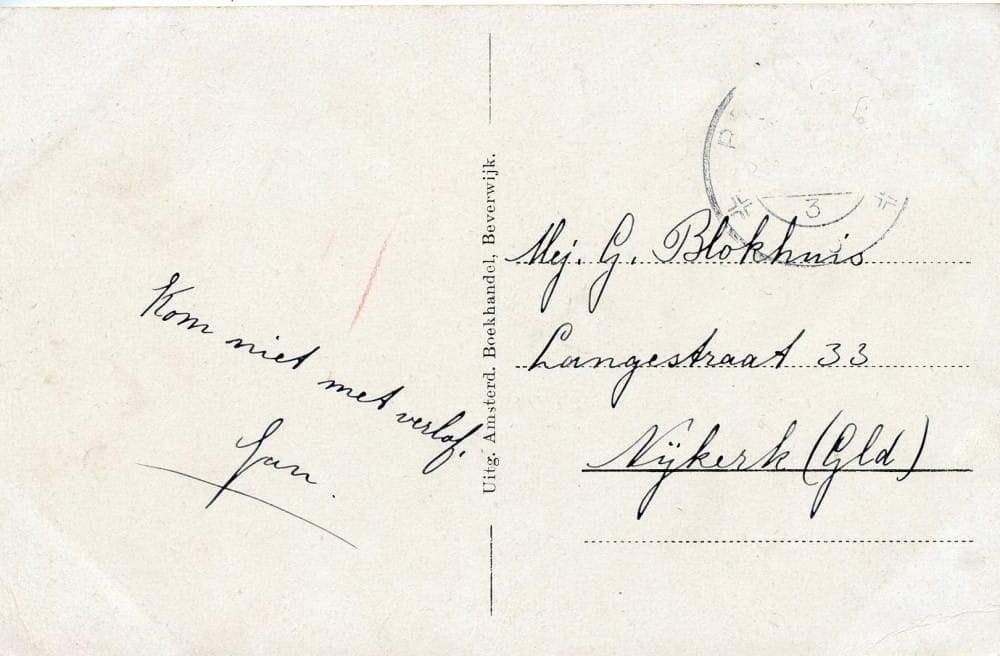 Kom niet met verlof.
Jan.
Uitg. Amsterd. Boekhandel, Beverwijk.
3
Mej. G. Blokhuis
Langestraat 33
Nijkerk (Gld)